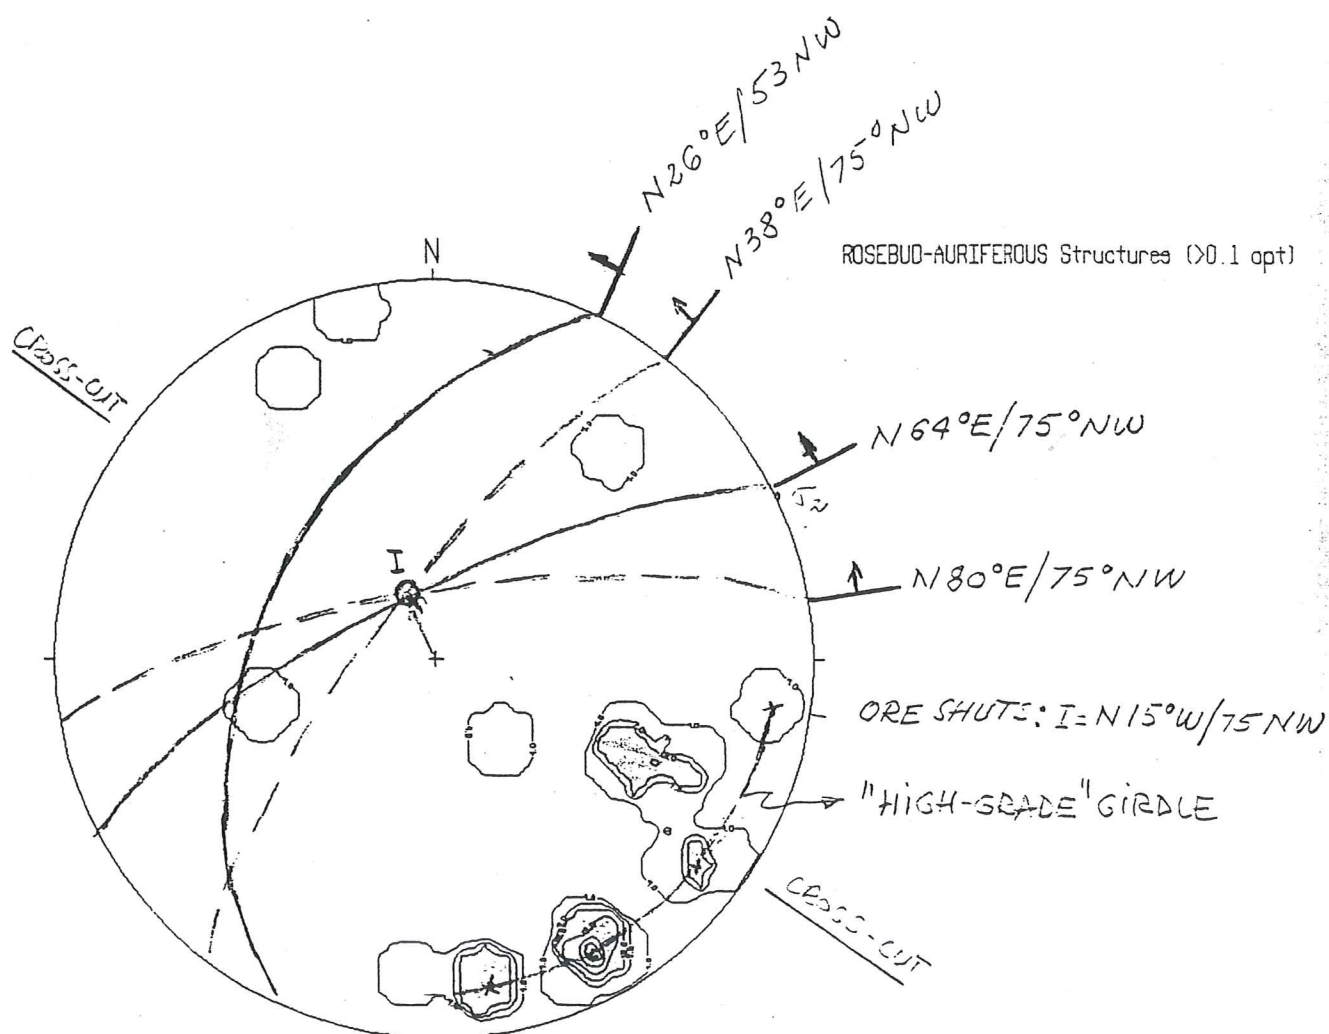 N26°E/53NW
N38°E/75°NW
N
ROSEBUD-AURIFEROUS Structures (>0.1 opt)
CROSS-CUT
N64°E/75°NW
σ2
I
N80°E/75°NW
ORE SHUTS: I=N15°W/75NW
"HIGH-GRADE" GIRDLE
CROSS-CUT